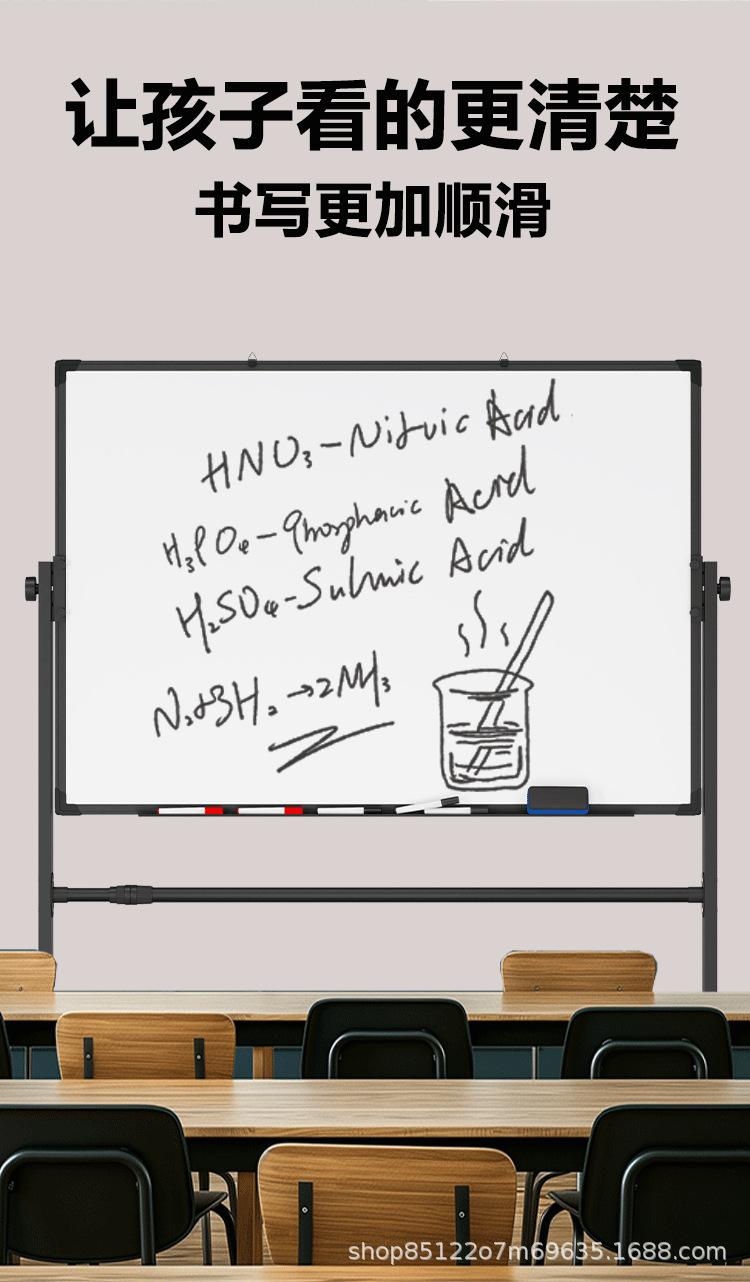 让孩子看的更清楚
书写更加顺滑
HNO₃-Nitric Acid
H₃PO₄-Phosphoric Acid
H₂SO₄-Sulnuic Acid
N₂+3H₂→2NH₃
shop85122o7m69635.1688.com